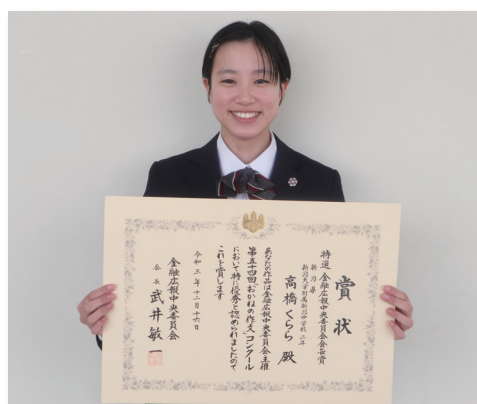 賞状
特選 金融広報中央委員会会長賞
新潟県
新潟大学附属新潟中学校二年
高橋くらら 殿
あなたの作品は金融広報中央委員会主催
第五十四回「おかねの作文」コンクール
において特に優秀と認められましたので
これを賞します
令和三年十二月十六日
金融広報中央委員会
会長 武井敏一